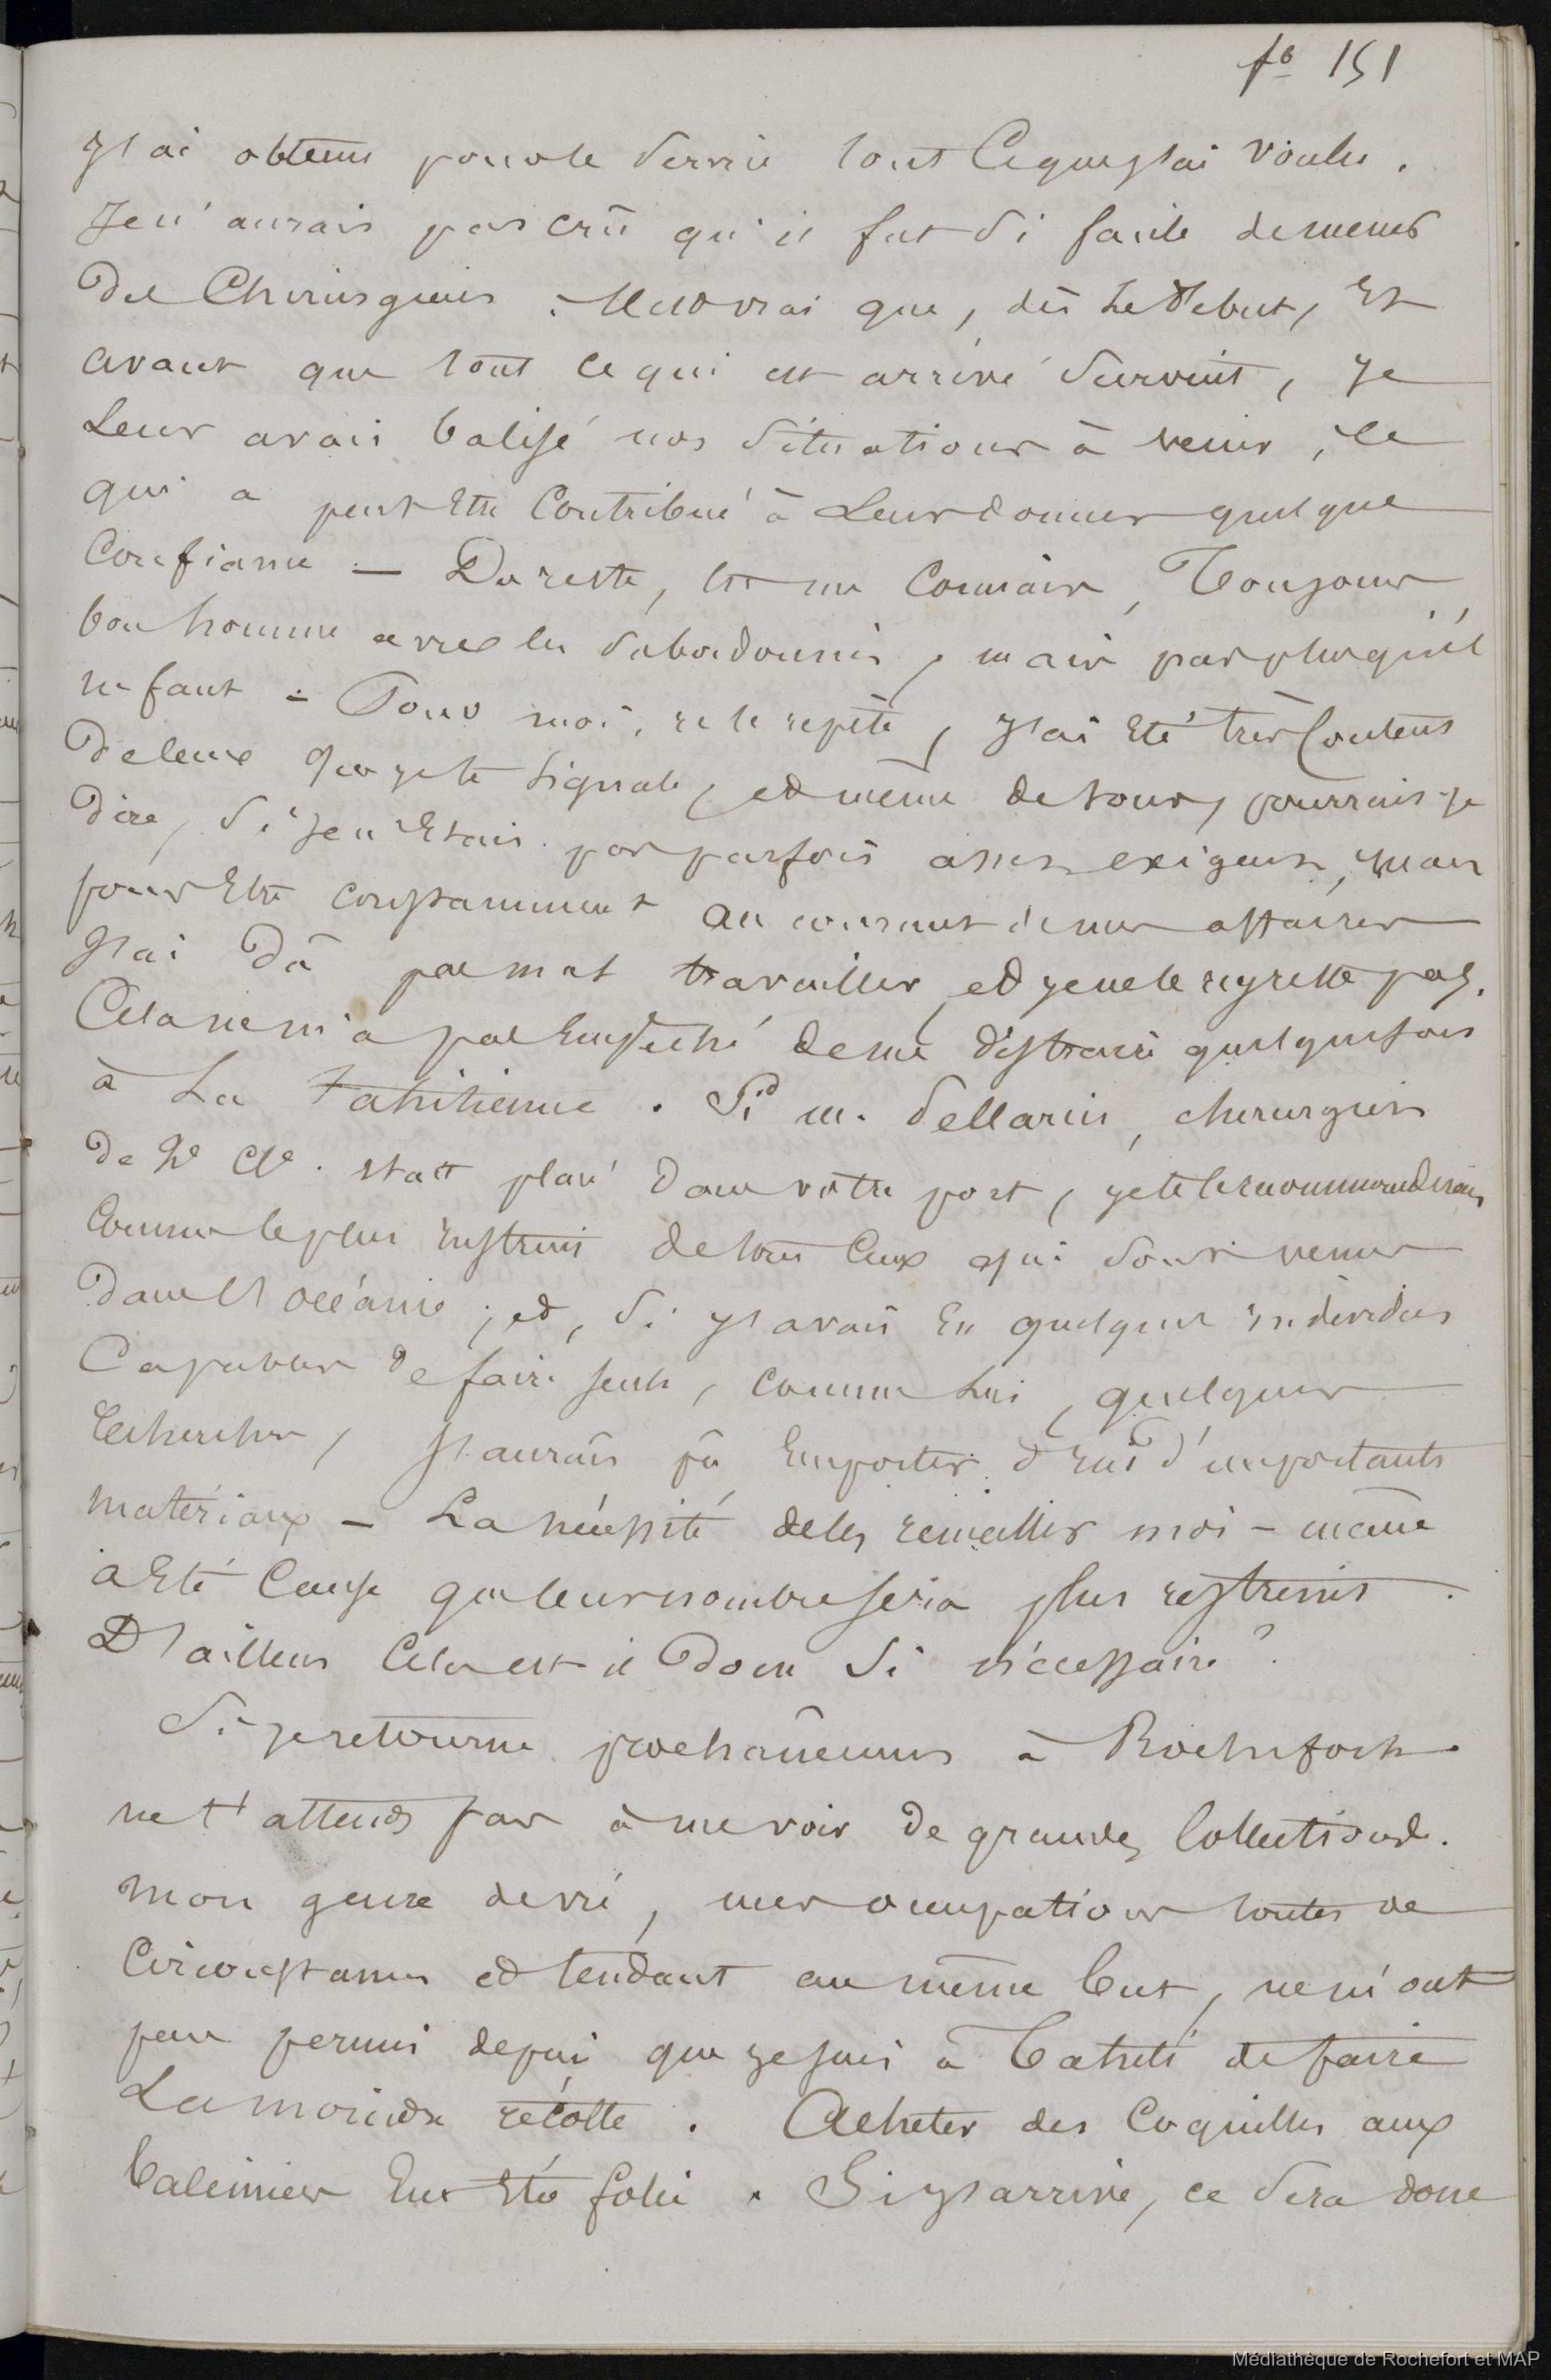 fo 151
J'ai obtenu pour le service tout ce que j'ai voulu.
Je n'aurais pas crû qu'il fut si facile de mener
des Chirurgiens. Il est vrai que, dès le debut, et
avant que tout ce qui est arrivé survint, je
leur avais balisé nos situations à venir, ce
qui a peut être contribué à leur donner quelque
confiance — Du reste, tu me connais, toujours
bon homme avec les subordonnés, mais pas plus qu'il
ne faut - Pour moi, je le repète, j'ai été très content
de ceux que je te signale, et même de tous, pourrais-je
dire, si je n'étais pas parfois assez exigeant, mais
pour être constamment au courant de mes affaires
j'ai dû pas mal travailler, et je ne le regrette pas.
Cela ne m'a pas empêché de me distraire quelquefois
à la tahitienne. Si m. Dellarin, chirurgien
de 2e Cle. était placé dans votre port, je te le recommanderais
comme le plus instruit de tous ceux qui sont venus
dans l'océanie; et, si j'avais eu quelques individus
capables de faire seuls, comme lui, quelques
recherches, j'aurais pû emporter d'ici d'importants
matériaux — La nécessité de les recueillir moi-même
a été cause que leur nombre sera plus restreint.
D'ailleurs cela est il donc si nécessaire?
Si je retourne prochainement à Rochefort
ne t'attends pas à me voir de grandes collections.
Mon genre de vie, mes occupations toutes de
circonstances et tendant au même but, ne m'ont
pas permis depuis que je suis à Tahiti de faire
la moindre récolte. Acheter des coquilles aux
baleiniers eut été folie. Si j'arrive, ce sera donc
Médiathèque de Rochefort et MAP